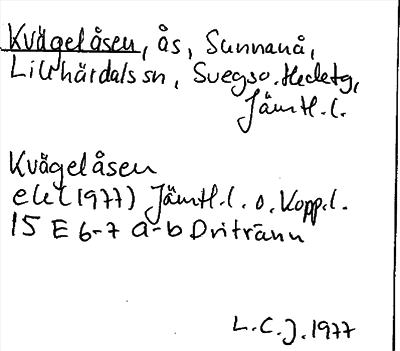 Kvägelåsen, ås, Sunnanå,
Lillhärdals sn, Svegs o. Hedetg,
Jämtl. l.
Kvägelåsen
ekl (1977) Jämtl. l. o. Kopp. l.
15 E 6-7 a-b Dritränn
L.C.J. 1977